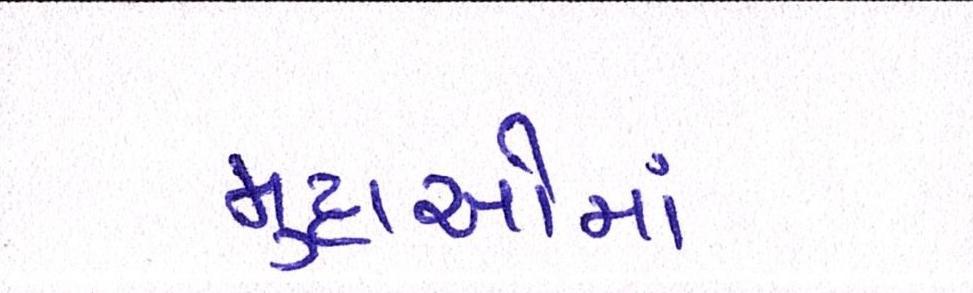 મુદ્રાઓમાં